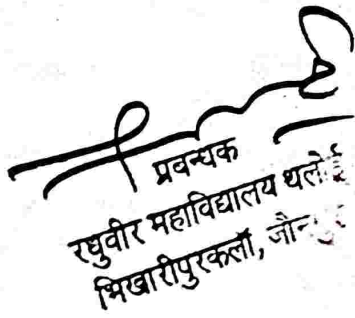 प्रबन्धक
रघुवीर महाविद्यालय थलोई
भिखारीपुरकलाँ,